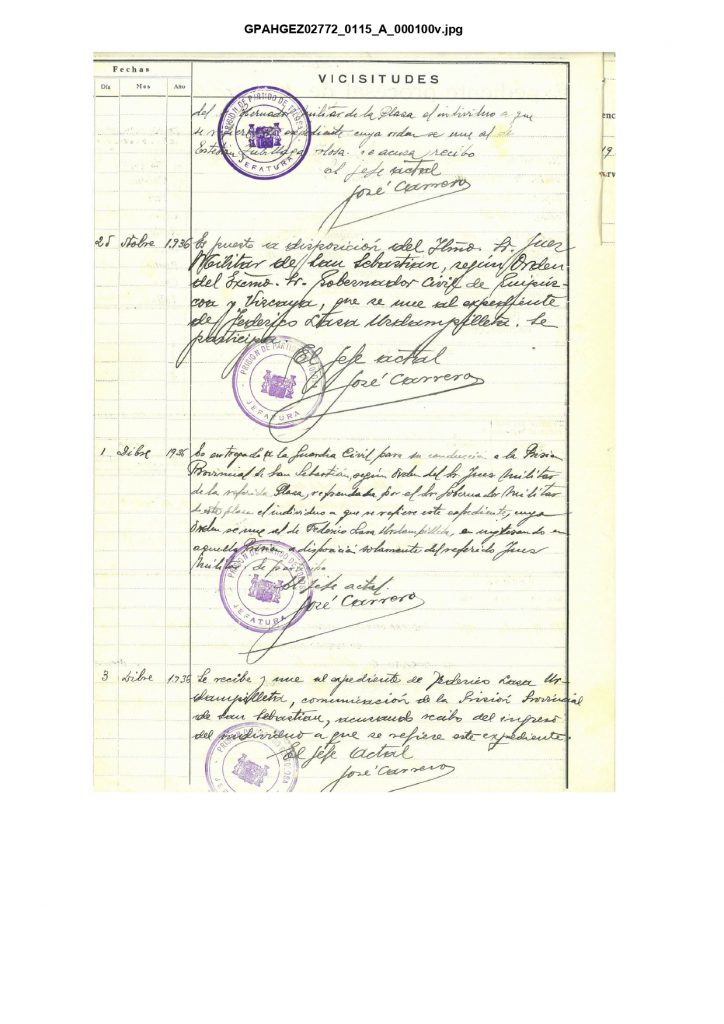 GPAHGEZ02772_0115_A_000100v.jpg
Fechas
Día Mes Año
VICISITUDES
del Militar de la Plaza el individuo a que
se expediente cuya orden se une al de
Esteban se acusa recibo
el Jefe actal
José Carrero
PRISION DE PARTIDO DE TOLOSA
JEFATURA
25 Nobre 1936 Es puesto a disposición del Iltmo. Sr. Juez
Militar de San Sebastián, según Orden
del Excmo. Sr. Gobernador Civil de Guipúz-
coa y Vizcaya, que se une al expediente
de Federico Lasa Urdampilleta. Se
participa.
El Jefe actal
José Carrero
PRISION DE PARTIDO TOLOSA
JEFATURA
1 Dibre 1936 Es entregado a la Guardia Civil para su conducción a la Prisión
Provincial de San Sebastián, según Orden del Sr. Juez Militar
de la referida Plaza, refrendada por el Sr Gobernador Militar
de esta plaza el individuo a que se refiere este expediente, cuya
Orden se une al de Federico Lasa Urdampilleta, en
aquella Prisión a disposición solamente del referido Juez
Militar
El Jefe actal.
José Carrero
PRISION DE PARTIDO DE TOLOSA
JEFATURA
3 Dibre 1936 Se recibe y une al expediente de Federico Lasa Ur-
dampilleta, comunicación de la Prisión Provincial
de San Sebastián, acusando recibo del ingreso
del individuo a que se refiere este expediente.
El Jefe actal
José Carrero
PRISION DE PARTIDO DE TOLOSA